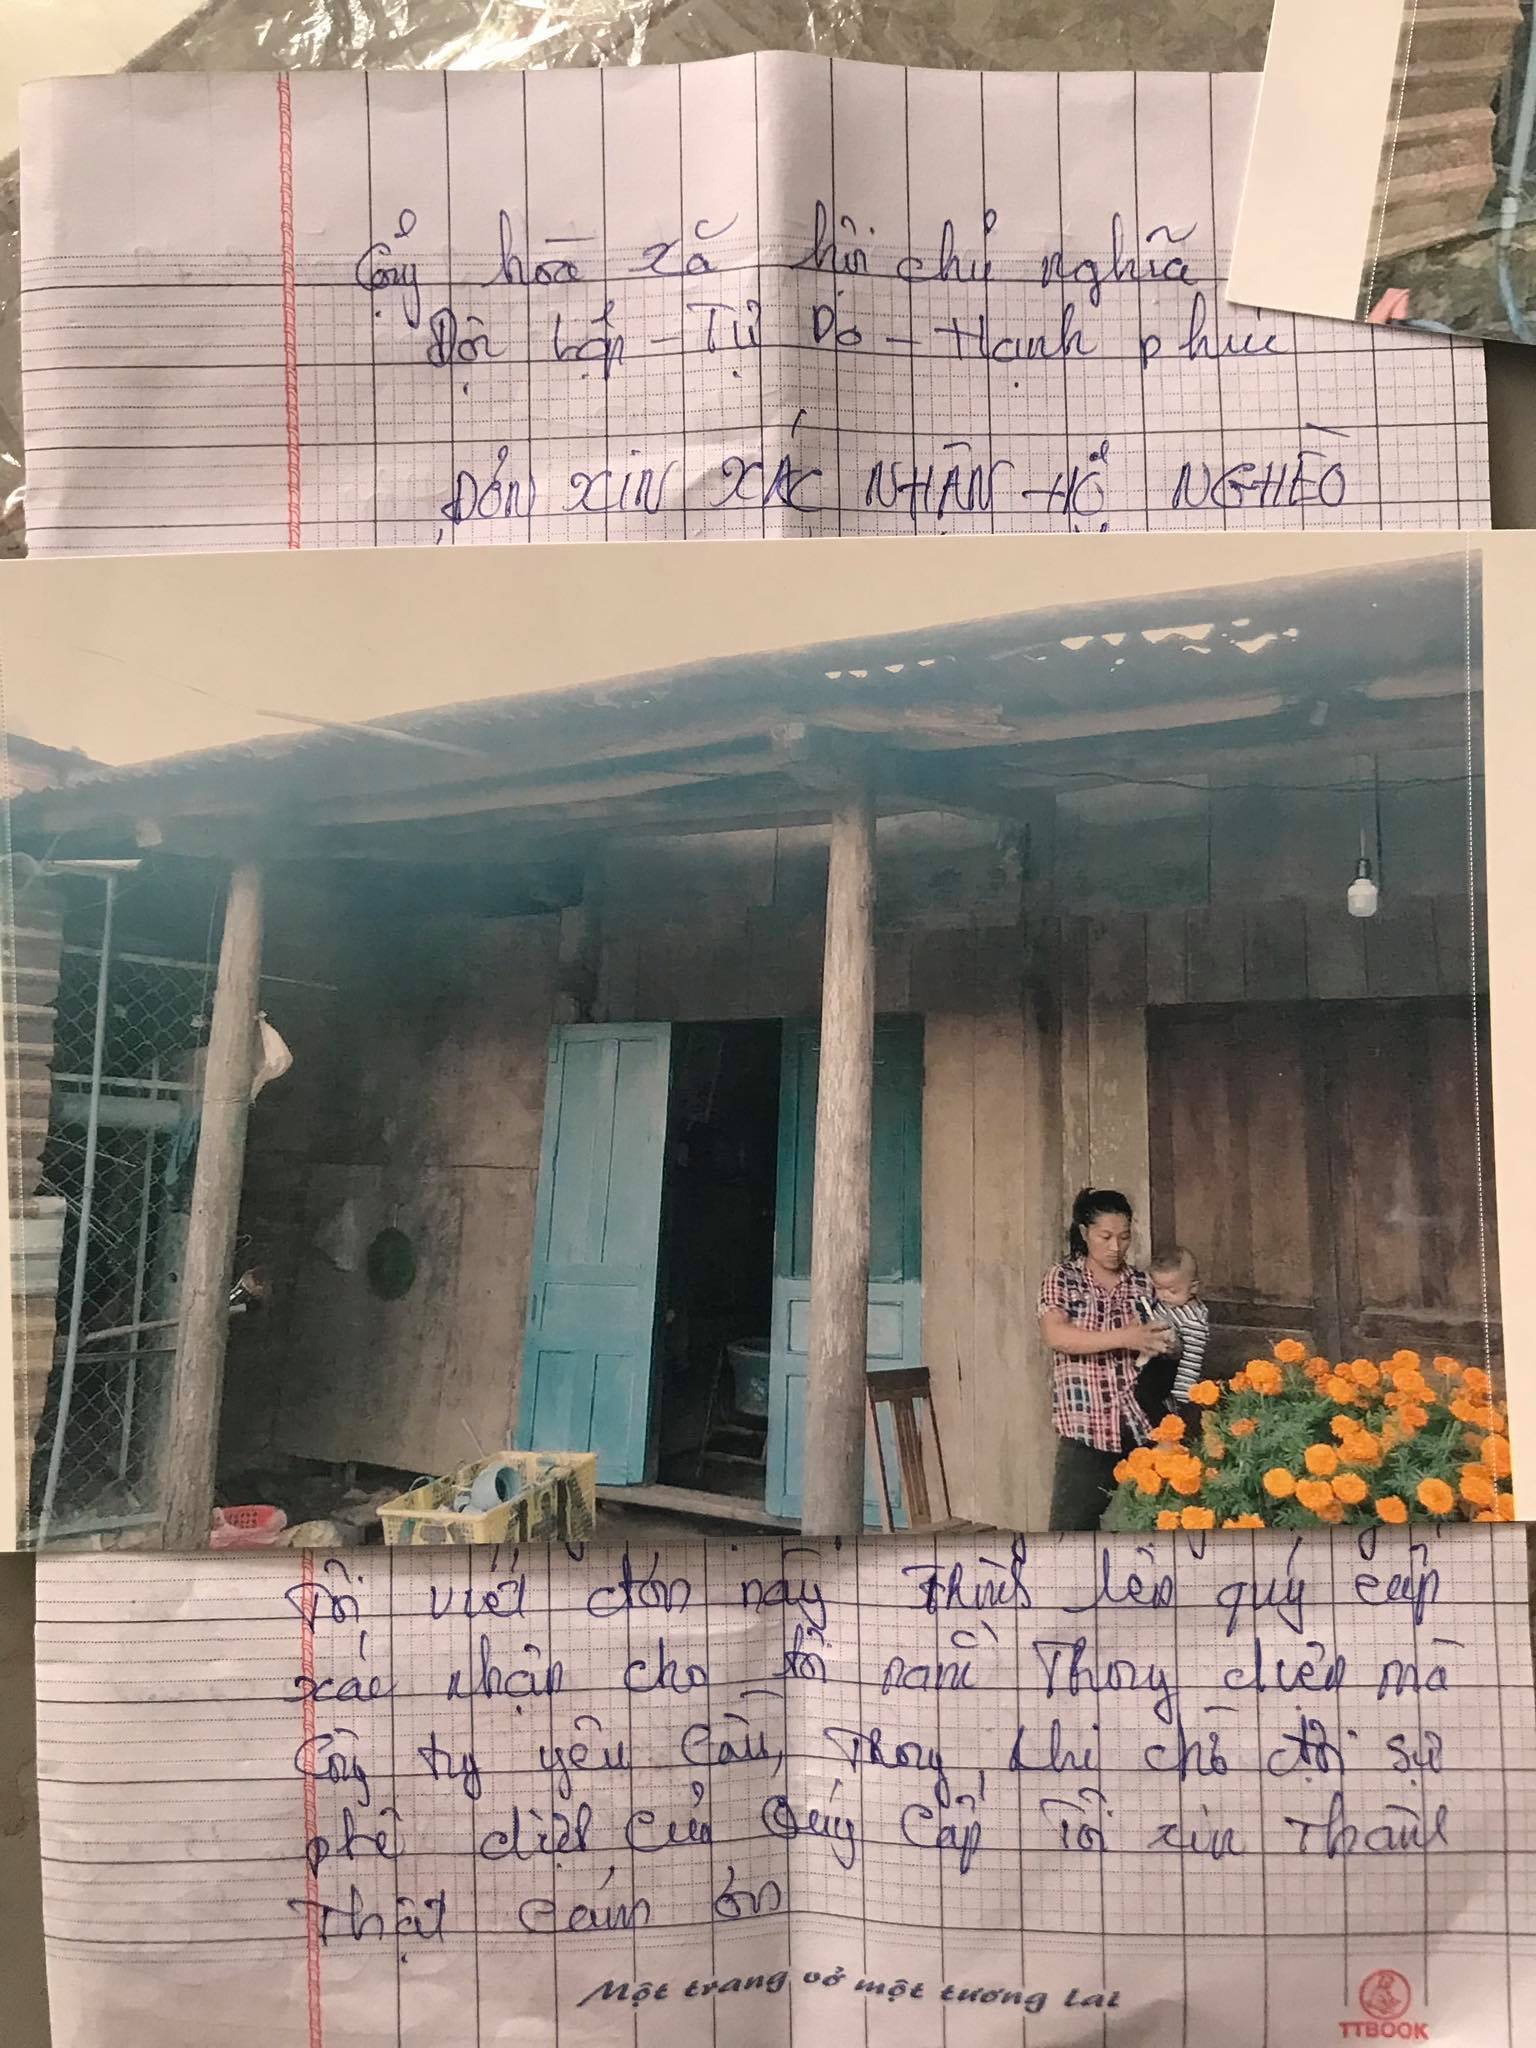 Cộng hòa xã hội chủ nghĩa
Độc Lập - Tự Do - Hạnh phúc
ĐƠN XIN XÁC NHẬN HỘ NGHÈO
Tôi viết đơn này trình lên quý cấp
xác nhận cho tôi Thông diện mà
Công ty yêu cầu, Trong khi chờ đợi sự
phê diệt của Quý Cấp Tôi xin Thành
Thật cám ơn
Một trang vở một tương lai
TTBOOK